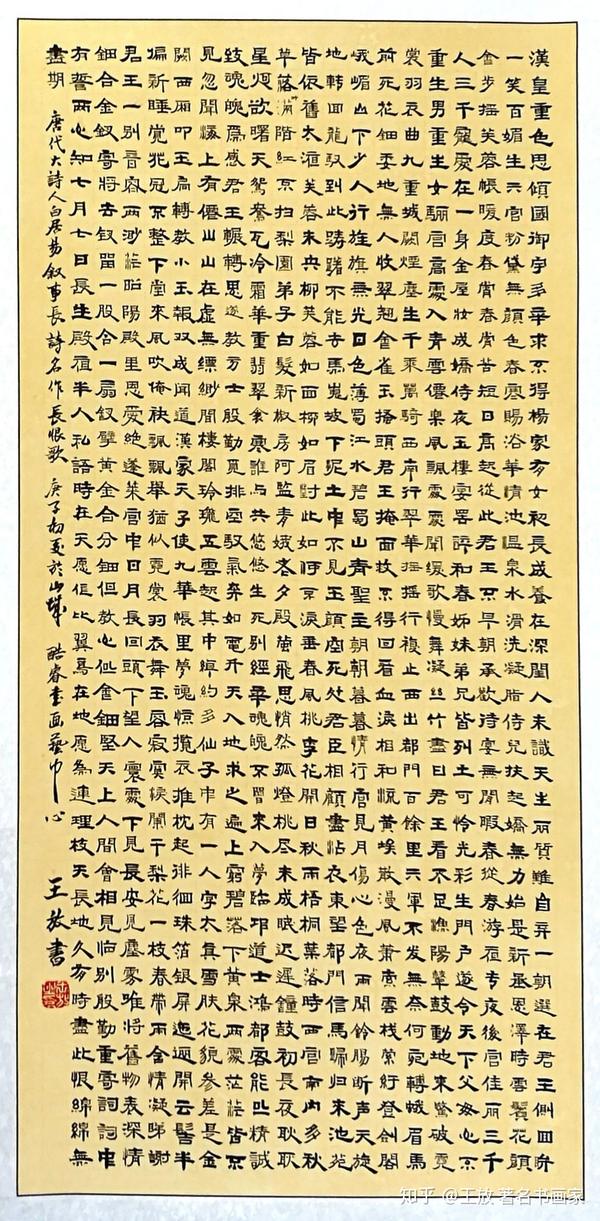 漢皇重色思傾國御宇多年求不得楊家有女初長成養在深閨人未識天生丽質難自弃一朝選在君王側回眸
一笑百媚生六宫粉黛無顔色春寒賜浴華清池温泉水滑洗凝脂侍兒扶起嬌無力始是新承恩澤時雲鬢花顔
金步摇芙蓉帳暖度春宵春宵苦短日高起從此君王不早朝承歡侍宴無閑暇春從春游夜專夜後宫佳丽三千
人三千寵愛在一身金屋妝成嬌侍夜玉樓宴罢醉和春姊妹弟兄皆列土可怜光彩生門户遂令天下父母心不
重生男重生女驪宫高處入青雲僊樂風飄處處聞緩歌慢舞凝丝竹盡日君王看不足漁陽鼙鼓動地來驚破霓
裳羽衣曲九重城闕煙塵生千乘萬騎西南行翠華摇摇行複止西出都門百餘里六軍不發無奈何宛轉蛾眉馬
前死花鈿委地無人收翠翹金雀玉搔頭君王掩面救不得回看血淚相和流黄埃散漫風蕭索雲栈萦紆登劍閣
峨嵋山下少人行旌旗無光日色薄蜀江水碧蜀山青聖主朝朝暮暮情行宫見月傷心色夜雨聞鈴腸斷声天旋
地轉回龍馭到此踌躇不能去馬嵬坡下泥土中不見玉顔空死处君臣相顧盡沾衣東望都門信馬歸归來池苑
皆依舊太液芙蓉未央柳芙蓉如面柳如眉對此如何不淚垂春風桃李花開日秋雨梧桐葉落時西宫南内多秋
草落满階紅不扫梨園弟子白髮新椒房阿監青娥老夕殿萤飛思悄然孤燈挑尽未成眠迟遲鐘鼓初長夜耿耿
星河欲曙天鴛鴦瓦冷霜華重翡翠衾寒誰与共悠悠生死别經年魂魄不曾來入夢臨邛道士鴻都客能以精誠
致魂魄爲感君王輾轉思遂教方士殷勤覓排空馭氣奔如電升天入地求之遍上窮碧落下黄泉兩處茫茫皆不
見忽聞海上有僊山山在虚無缥緲間樓閣玲瓏五雲起其中綽約多仙子中有一人字太真雪肤花貌参差是金
闕西厢叩玉扃轉教小玉報双成聞道漢家天子使九華帳里夢魂惊攬衣推枕起徘徊珠箔銀屏迤邐開云髻半
偏新睡觉花冠不整下堂來風吹僊袂飄飄舉猶似霓裳羽衣舞玉容寂寞淚闌干梨花一枝春帶雨含情凝睇謝
君王一别音容兩渺茫昭陽殿里恩愛絶蓬莱宫中日月長回頭下望人寰處不見長安見塵雾唯將舊物表深情
鈿合金釵寄將去钗留一股合一扇钗擘黄金合分鈿但教心似金鈿堅天上人間會相見临别殷勤重寄詞詞中
有誓兩心知七月七日長生殿夜半人私語時在天愿作比翼鳥在地愿為連理枝天長地久有時盡此恨綿綿無
盡期 唐代大詩人白居易叙事長詩名作長恨歌 庚子初夏於山城 酷睿書画藝中心 王放書
知乎 @王放 著名书画家